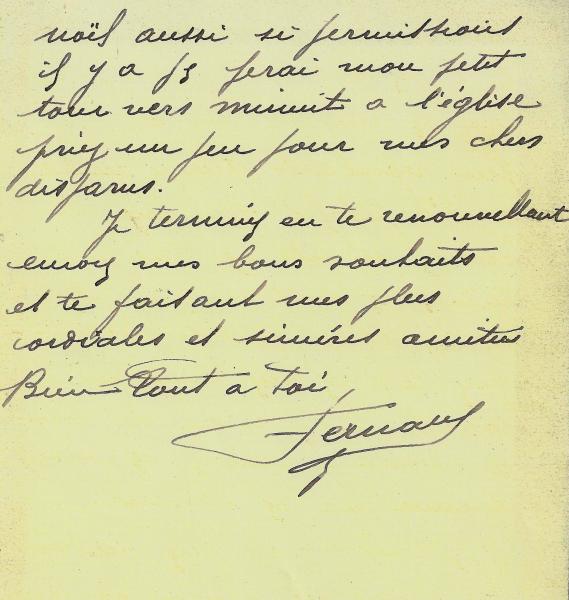 noël aussi si permissions
il y a je ferai mon petit
tour vers minuit a l'église
priez un peu pour mes chers
disparus.
Je termine en te renouvellant
encore mes bons souhaits
et te faisant mes plus
cordiales et sincères amitiés
Bien tout a toi,
Fernand